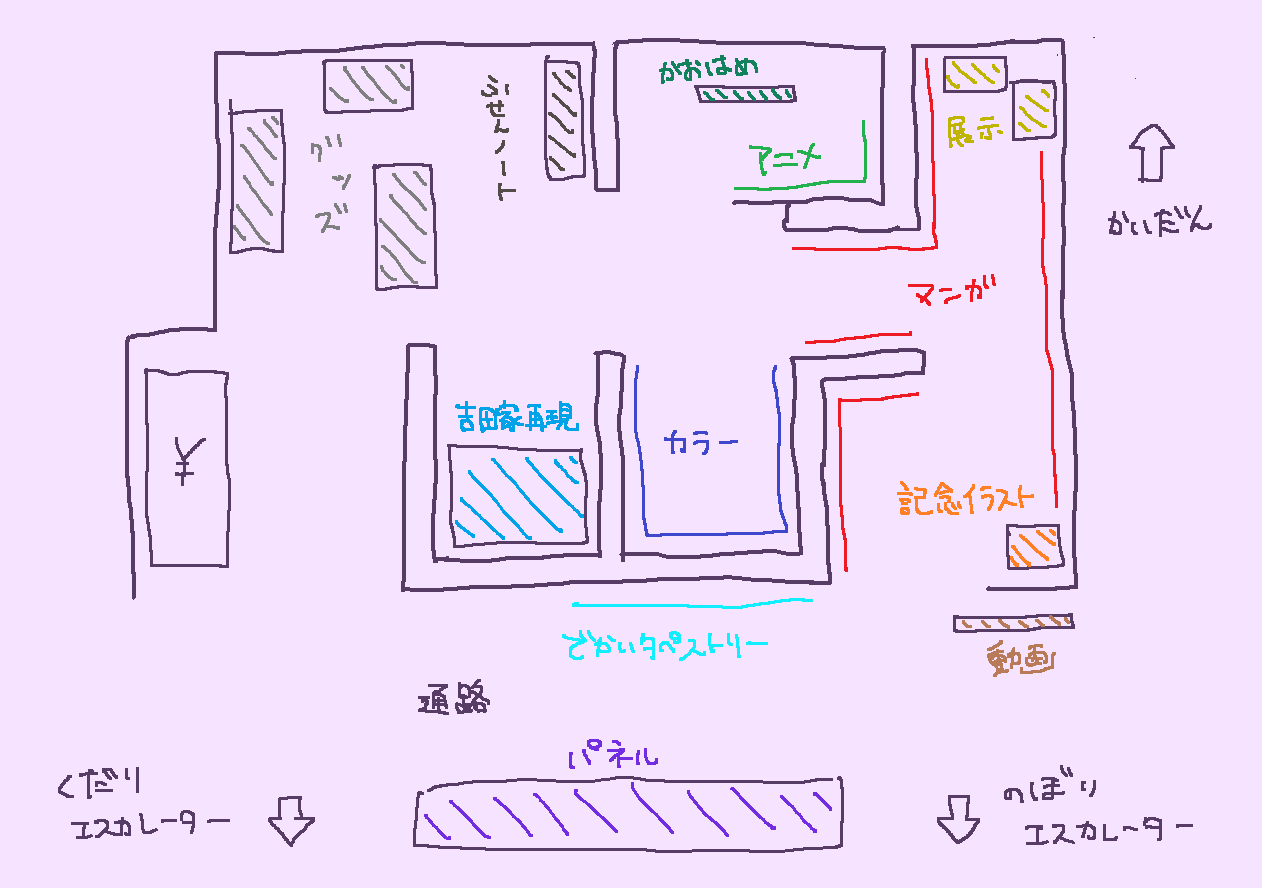 かおはめ
ふせんノート
アニメ
展示
グッズ
かいだん
マンガ
吉田家再現
カラー
¥
記念イラスト
でかいタペストリー
動画
通路
パネル
くだり
エスカレーター
のぼり
エスカレーター